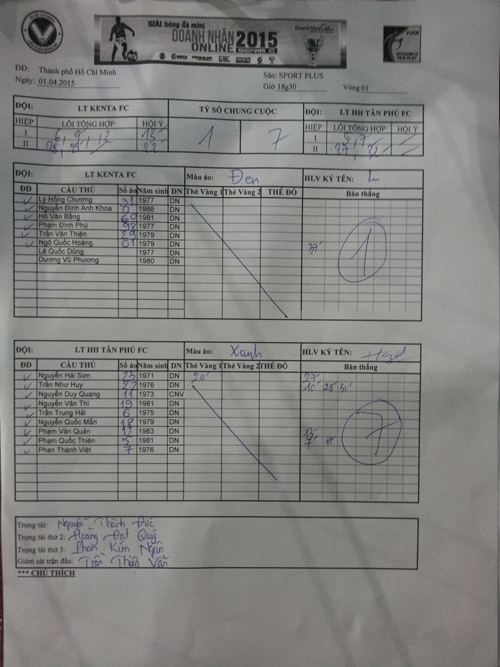 GIẢI bóng đá mini
DOANH NHÂN 2015
ONLINE
ĐĐ: Thành phố Hồ Chí Minh
Sân: SPORT PLUS
Ngày: 01.04.2015
Giờ 18g30
Vòng 01
ĐỘI: LT KENTA FC TỶ SỐ CHUNG CUỘC ĐỘI: LT HH TÂN PHÚ FC
HIỆP LỖI TỔNG HỢP HỘI Ý 1 7 HIỆP LỖI TỔNG HỢP HỘI Ý
I I
II II
ĐỘI: LT KENTA FC Màu áo: Đen HLV KÝ TÊN:
ĐD CẦU THỦ Số áo Năm sinh DN Thẻ Vàng 1 Thẻ Vàng 2 THẺ ĐỎ Bàn thắng
Lý Hồng Chương 1977 DN
Nguyễn Đình Anh Khoa 1988 DN
Hồ Văn Bằng 69 1981 DN
Phạm Đình Phú 98 1977 DN
Trần Văn Thiện 29 1979 DN
Ngô Quốc Hoàng 01 1979 DN 37' 1
Lê Quốc Dũng 1977 DN
Dương Vũ Phương 1980 DN
ĐỘI: LT HH TÂN PHÚ FC Màu áo: Xanh HLV KÝ TÊN:
ĐD CẦU THỦ Số áo Năm sinh DN Thẻ Vàng 1 Thẻ Vàng 2 THẺ ĐỎ Bàn thắng
Nguyễn Hải Sơn 23 1971 DN 20' 27'
Trần Như Huy 27 1976 DN 10'
Nguyễn Duy Quang 11 1973 CNV
Nguyễn Văn Thi 19 1981 DN
Trần Trung Hải 6 1975 DN
Nguyễn Quốc Mẫn 18 1979 DN 7
Phạm Văn Quân 1983 DN 13'
Phạm Quốc Thiên 5 1981 DN 7'
Phan Thành Việt 7 1976 DN
Trọng tài: Nguyễn Thành Đức
Trọng tài thứ 2: Hoàng Đạt Quý
Trọng tài thứ 3: Phan Kim Ngân
Giám sát trận đấu: Trần Thiên Văn
*** CHÚ THÍCH